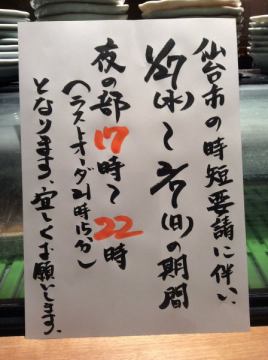 仙台市の時短要請に伴い、
1/27(水)〜2/7(日)の期間
夜の部17時〜22時
(ラストオーダー21時15分)
となります。宜しくお願いします。